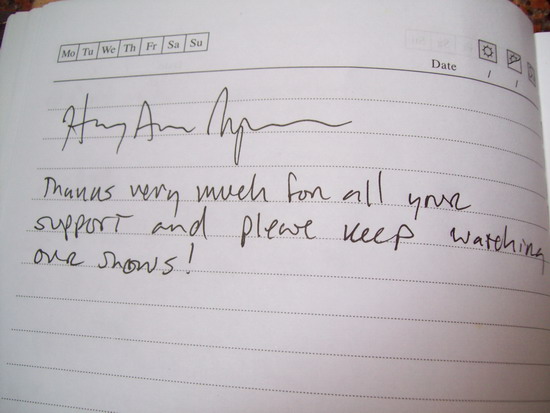 Mo Tu We Th Fr Sa Su
Date / /
Thanks very much for all your
support and please keep watching
our shows!